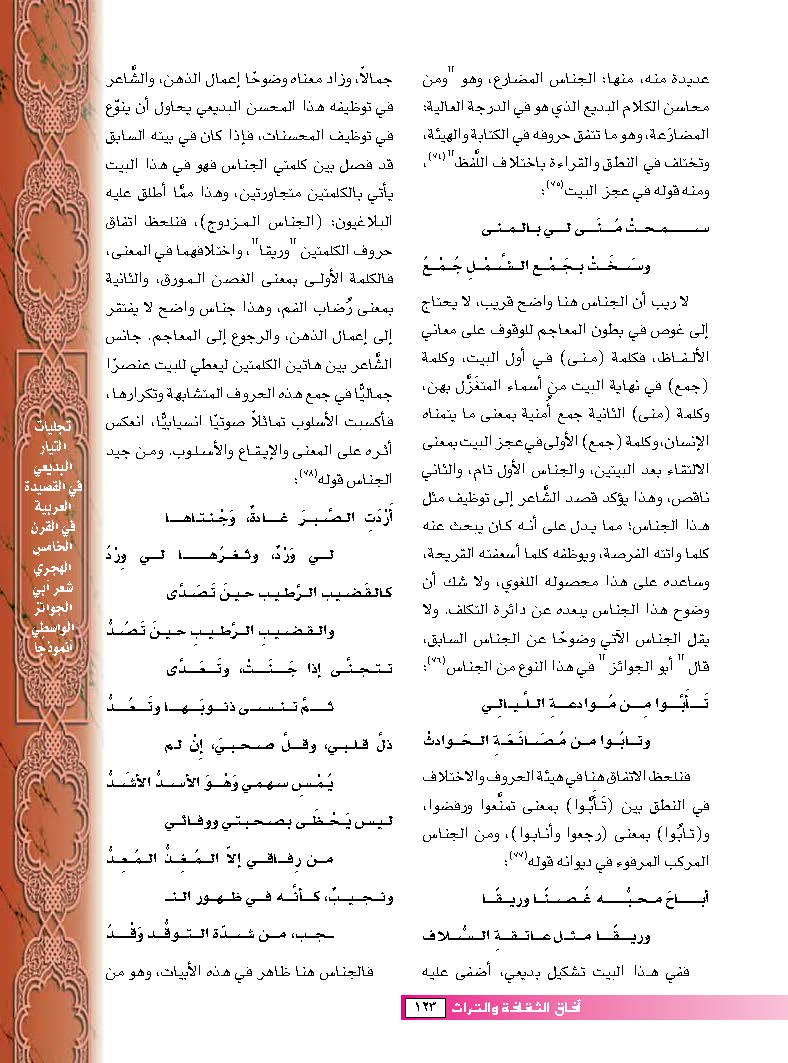 عديدة منه، منها: الجناس المضارع، وهو "ومن
محاسن الكلام البديع الذي هو في الدرجة العالية:
المضارَعة، وهو ما تتفق حروفه في الكتابة والهيئة،
وتختلف في النطق والقراءة باختلاف اللَّفظ"(٧٤)،
ومنه قوله في عجز البيت(٧٥):
سـمـحـتْ مُـنَـى لـي بـالـمـنى
وسَـخَـتْ بـجَـمْـع الـشَّـمْـلِ جُـمْـعُ
لا ريب أن الجناس هنا واضح قريب، لا يحتاج
إلى غوص في بطون المعاجم للوقوف على معاني
الألفاظ، فكلمة (منى) في أول البيت، وكلمة
(جمع) في نهاية البيت من أسماء المتغَزَّل بهن،
وكلمة (منى) الثانية جمع أُمنية بمعنى ما يتمناه
الإنسان، وكلمة (جمع) الأولى في عجز البيت بمعنى
الالتقاء بعد البينين، والجناس الأول تام، والثاني
ناقص، وهذا يؤكد قصد الشَّاعر إلى توظيف مثل
هذا الجناس؛ مما يدل على أنه كان يبحث عنه
كلما واتته الفرصة، ويوظفه كلما أسعفته القريحة،
وساعده على هذا محصوله اللغوي، ولا شك أن
وضوح هذا الجناس يبعده عن دائرة التكلف. ولا
يقل الجناس الآتي وضوحًا عن الجناس السابق،
قال "أبو الجوائز" في هذا النوع من الجناس(٧٦):
تَـأَبَّـوا مِـن مُـوادعـةِ الـلَّـيـالـي
وتـابُـوا مـن مُـصَـانَـعَـةِ الـحَـوادثْ
فنلحظ الاتفاق هنا في هيئة الحروف والاختلاف
في النطق بين (تَأَبَّوا) بمعنى تمنَّعوا ورفضوا،
و(تابُوا) بمعنى (رجعوا وأنابوا)، ومن الجناس
المركب المرفوء في ديوانه قوله(٧٧):
أبـاحَ مـحـبُّـه غُـصـنًـا وريـقًـا
وريـقًـا مـثـل عـاتـقـةِ الـسُّـلاف
ففي هذا البيت تشكيل بديعي، أضفى عليه
جمالاً، وزاد معناه وضوحًا إعمال الذهن، والشَّاعر
في توظيفه هذا المحسن البديعي يحاول أن ينوّع
في توظيف المحسنات، فإذا كان في بيته السابق
قد فصل بين كلمتي الجناس فهو في هذا البيت
يأتي بالكلمتين متجاورتين، وهذا ممَّا أطلق عليه
البلاغيون: (الجناس المزدوج)، فنلحظ اتفاق
حروف الكلمتين "وريقا"، واختلافهما في المعنى،
فالكلمة الأولى بمعنى الغصن المورق، والثانية
بمعنى رُضاب الفم، وهذا جناس واضح لا يفتقر
إلى إعمال الذهن، والرجوع إلى المعاجم. جانس
الشَّاعر بين هاتين الكلمتين ليعطي للبيت عنصرًا
جماليًّا في جمع هذه الحروف المتشابهة وتكرارها،
فأكسبت الأسلوب تماثلاً صوتيًا انسيابيًّا، انعكس
أثره على المعنى والإيقاع والأسلوب. ومن جيد
الجناس قوله(٧٨):
أَرْدَتِ الـصَّـبـرَ غـادةٌ، وَجْـنـتـاهـا
لـي وَرْدٌ، وثـغـرُهـا لـي وِرْدُ
كـالـقَـضـيـبِ الـرَّطـيـب حـيـنَ تَـصَـدَّى
والـقـضـيـبِ الـرَّطـيـبِ حـيـنَ تَـصُـدُّ
تـتـجـنَّـى إذا جَـنَـتْ، وتَـعَـدَّى
ثـمَّ تـنـسـى ذنـوبَـهـا وتَـعُـدُّ
ذلَّ قـلـبـي، وقـلَّ صـحـبـيَ، إنْ لم
يُـمْـسِ سـهـمـي وَهْـوَ الأسـدُّ الأشَـدُّ
لـيـس يَـحْـظَـى بـصـحـبـتـي ووفـائـي
مـن رِفـاقـي إلاّ الـمُـغِـذُّ الـمُـعِـدُّ
ونـجـيـبٌ، كـأنَّـه فـي ظـهـور الـنـ
ـجـب، مـن شـدّة الـتـوقُّـد وَقْـدُ
فالجناس هنا ظاهر في هذه الأبيات، وهو من
تجليات
التيار
البديعي
في القصيدة
العربية
في القرن
الخامس
الهجري
شعر أبي
الجوائز
الواسطي
أنموذجا
آفاق الثقافة والتراث ١٢٣